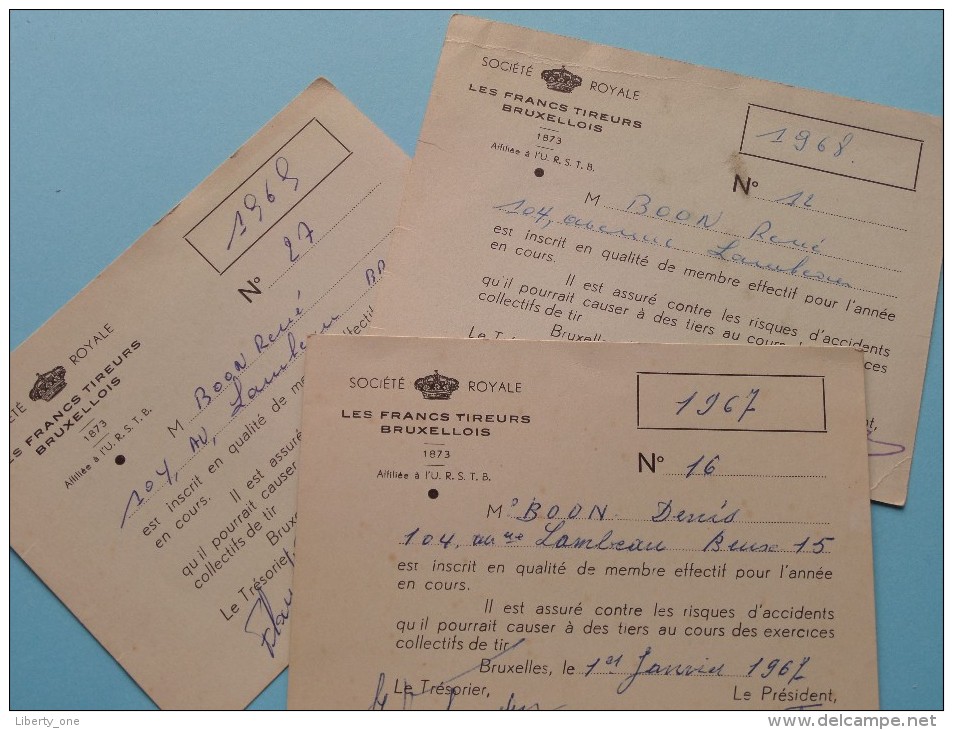 SOCIÉTÉ ROYALE
LES FRANCS TIREURS
BRUXELLOIS
1873
Affiliée à l'U. R. S. T. B.
1968.
N° 12
M BOON René
104, avenue Lambeau
est inscrit en qualité de membre effectif pour l'année
en cours.
Il est assuré contre les risques d'accidents
qu'il pourrait causer à des tiers au cours
collectifs de tir
Bruxelle
SOCIÉTÉ ROYALE
LES FRANCS TIREURS
BRUXELLOIS
1873
Affiliée à l'U. R. S. T. B.
1969
N° 27
M BOON René
104, av, Lambeau
est inscrit en qualité de me
en cours.
Il est assuré
qu'il pourrait
collectifs de tir
Bruxe
Le Trésorier,
SOCIÉTÉ ROYALE
LES FRANCS TIREURS
BRUXELLOIS
1873
Affiliée à l'U. R. S. T. B.
1967
N° 16
Mr BOON Denis
104, avue Lambeau Brux 15
est inscrit en qualité de membre effectif pour l'année
en cours.
Il est assuré contre les risques d'accidents
qu'il pourrait causer à des tiers au cours des exercices
collectifs de tir
Bruxelles, le 1er Janvier 1967
Le Trésorier, Le Président,
Liberty_one
www.delcampe.net